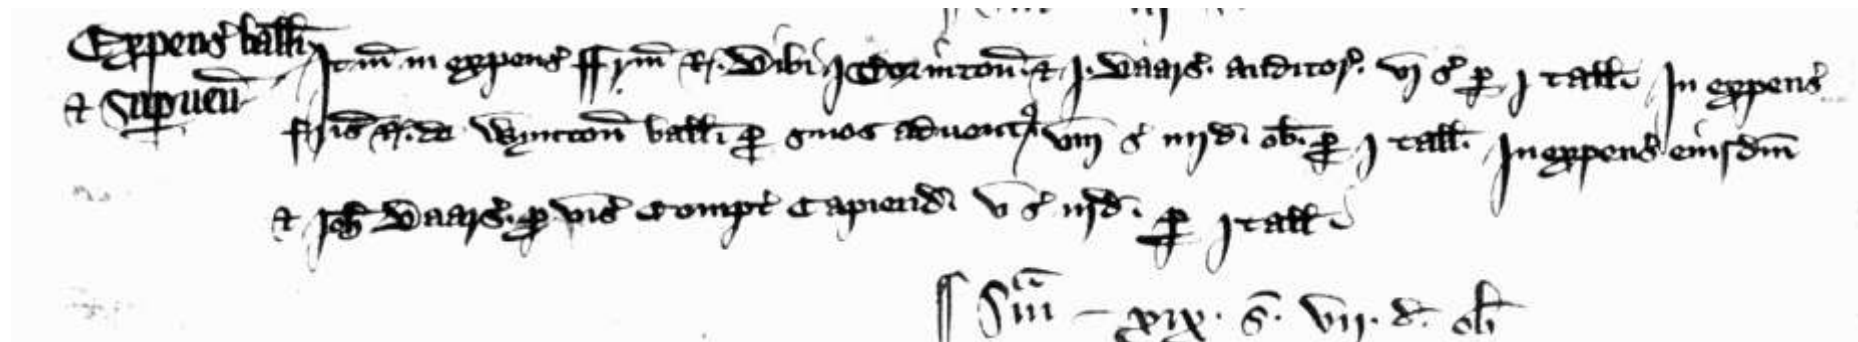 Expens̛ ball̛i
& Supueñ
Itm̃ in expens̛ ffrm̃ R. & J. auditor̛ vj s̛ p j tall̛ In expens̛
ffris̃ R. de Wynton̄ ball̛i p suos aduent̛ viij s̛ iiij d̛ ob. p j tall̛ In expens̛ eiusdm̃
& Joh̃ p vis̛ Compi̛ capiend̛ v s̛ iij d̛. p j tall̛
Sm̃a – xix. s̃. vij. d̛. ob̛